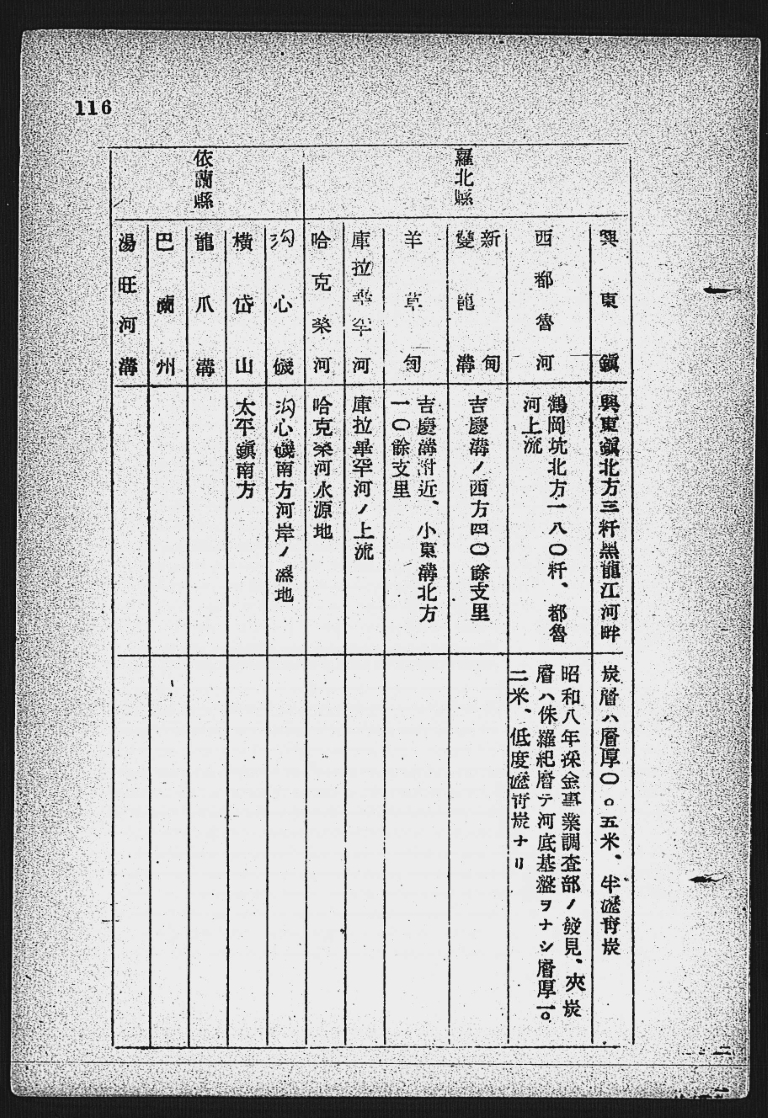 116
羅北縣
興東鎭
興東鎭北方三粁黑龍江河畔
炭層ハ層厚〇。五米、半瀝靑炭
西都魯河
鶴岡坑北方一八〇粁、都魯
河上流
昭和八年採金事業調査部ノ發見、夾炭
層ハ侏羅紀層テ河底基盤ヲナシ層厚一。
二米、低度瀝靑炭ナリ
新甸
雙龍溝
吉慶溝ノ西方四〇餘支里
羊草甸
吉慶溝附近、小東溝北方
一〇餘支里
庫拉畢罕河
庫拉畢罕河ノ上流
哈克榮河
哈克榮河水源地
依蘭縣
沟心磯
沟心磯南方河岸ノ濕地
橫岱山
太平鎭南方
龍爪溝
巴蘭州
湯旺河溝